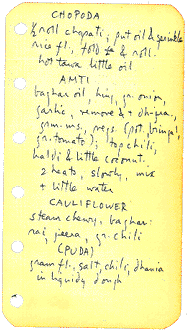 CHOPODA
roll chapati; put oil & sprinkle
rice fl., fold & roll.
hot tawa little oil
AMTI
baghar oil, hing, gr. onion,
garlic, remove & + dh-jira,
grm. ms., vegs (pot. brinjal,
gr. tomato); top chili,
haldi & little coconut.
2 heats, slowly, mix
+ little water
CAULIFLOWER
steam chewy, baghar:
rai, jeera, gr. chili
(PUDA)
gram fl., salt, chili, dhania
in liquidy dough